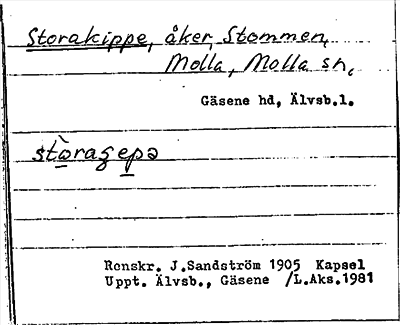 Storakippe, åker, Stommen,
Molla, Molla sn,
Gäsene hd, Älvsb.l.
stòragepə
Renskr. J.Sandström 1905 Kapsel
Uppt. Älvsb., Gäsene /L.Aks.1981